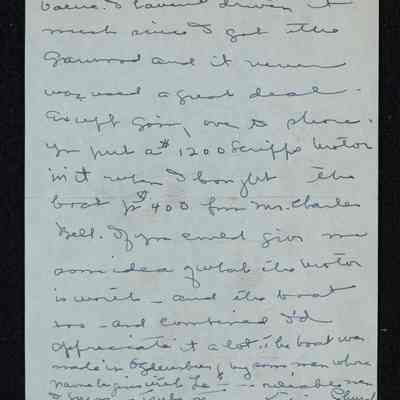 I haven't driven it
much since I got the
Garwood and it never
was used a great deal -
Except going over to shore.
You put a $1200 Scripps Motor
in it when I bought the
boat for $400 from Mr. Charles
Bell. If you could give me
some idea of what the Motor
is worth - and the boat
too - and combined I'd
appreciate it a lot. The boat was
made in Ogdensburg by some man whose
name begins with Le - reliable man